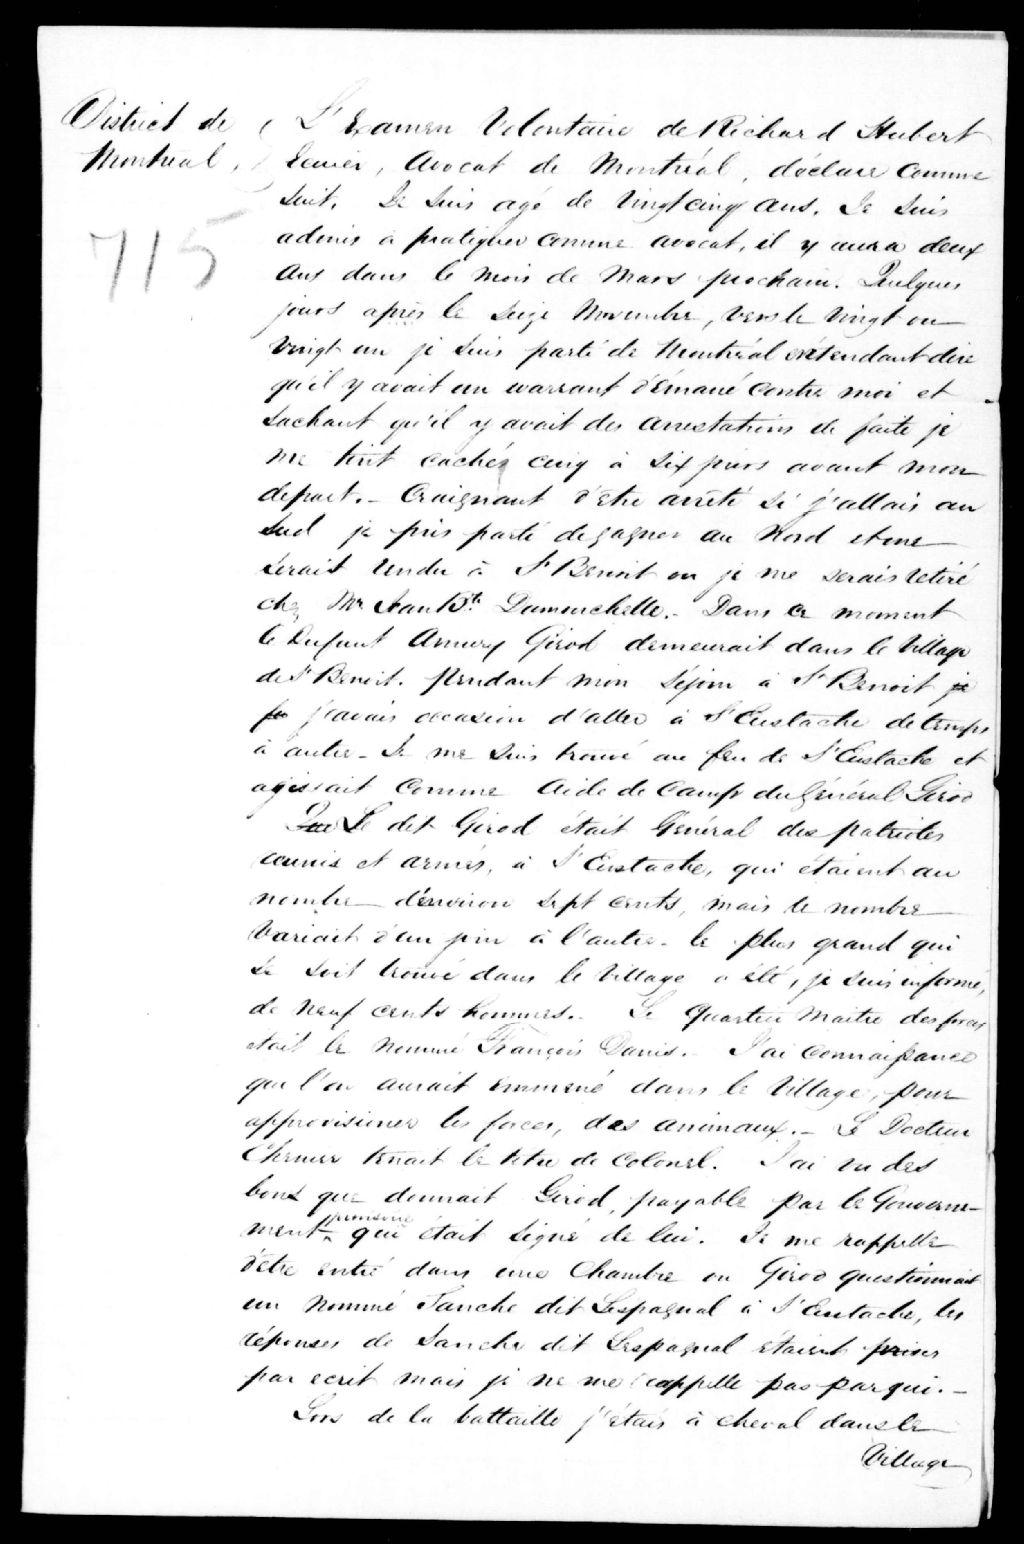 District de
Montréal,
715
L'Examen Volontaire de Richard Hubert
Ecuier, Avocat de Montréal, déclare comme
suit. Je suis agé de Vingt cinq ans. Je suis
admis à pratiquer comme avocat, il y aura deux
ans dans le mois de Mars prochain. Quelques
jours après le seize Novembre, vers le vingt ou
vingt un je suis parté de Montréal entendant dire
qu'il y avait un warrant d'émané contre moi et
sachant qu'il y avait des arrestations de faite je
me tint cachés cinq à six jours avant mon
depart. - Craignant d'etre arrêté si j'allais au
Sud je pris parté de gagner au Nord et me
serait rendu à St Benoit ou je me serais retiré
chez Mr Jean Bte Dumouchelle. - Dans ce moment
le Defunt Amury Girod demeurait dans le Village
de St Benoit. Pendant mon séjour à St Benoit je
fu j'avais occasion d'aller à St Eustache de temps
à autre - Je me suis trouvé au feu de St Eustache et
agissait comme Aide de Camp du Général Girod
Que Le dit Girod était Général des patriotes
réunis et armés, à St Eustache, qui étaient au
nombre d'environ sept cents, mais le nombre
variait d'un jour à l'autre - le plus grand qui
se soit trouvé dans le Village a été, je suis informé,
de neuf cents hommes. - Le Quartier Maitre des forces
était le nommé François Danis. - J'ai connaissance
que l'on aurait emmené dans le Village, pour
approvisioner les forces, des animaux. - Le Docteur
Chenier tenait le titre de Colonel. J'ai vu des
bons que donnait Girod, payable par le Gouverne-
provisoire
ment qui était signé de lui. Je me rappelle
d'être entré dans une Chambre ou Girod questionnait
un nommé Sanche dit Lespagnol à St Eustache, les
réponses de Sanche dit Lespagnol étaient prises
par ecrit mais je ne me rappelle pas par qui. -
Lors de la battaille j'étais à cheval dans le
Village